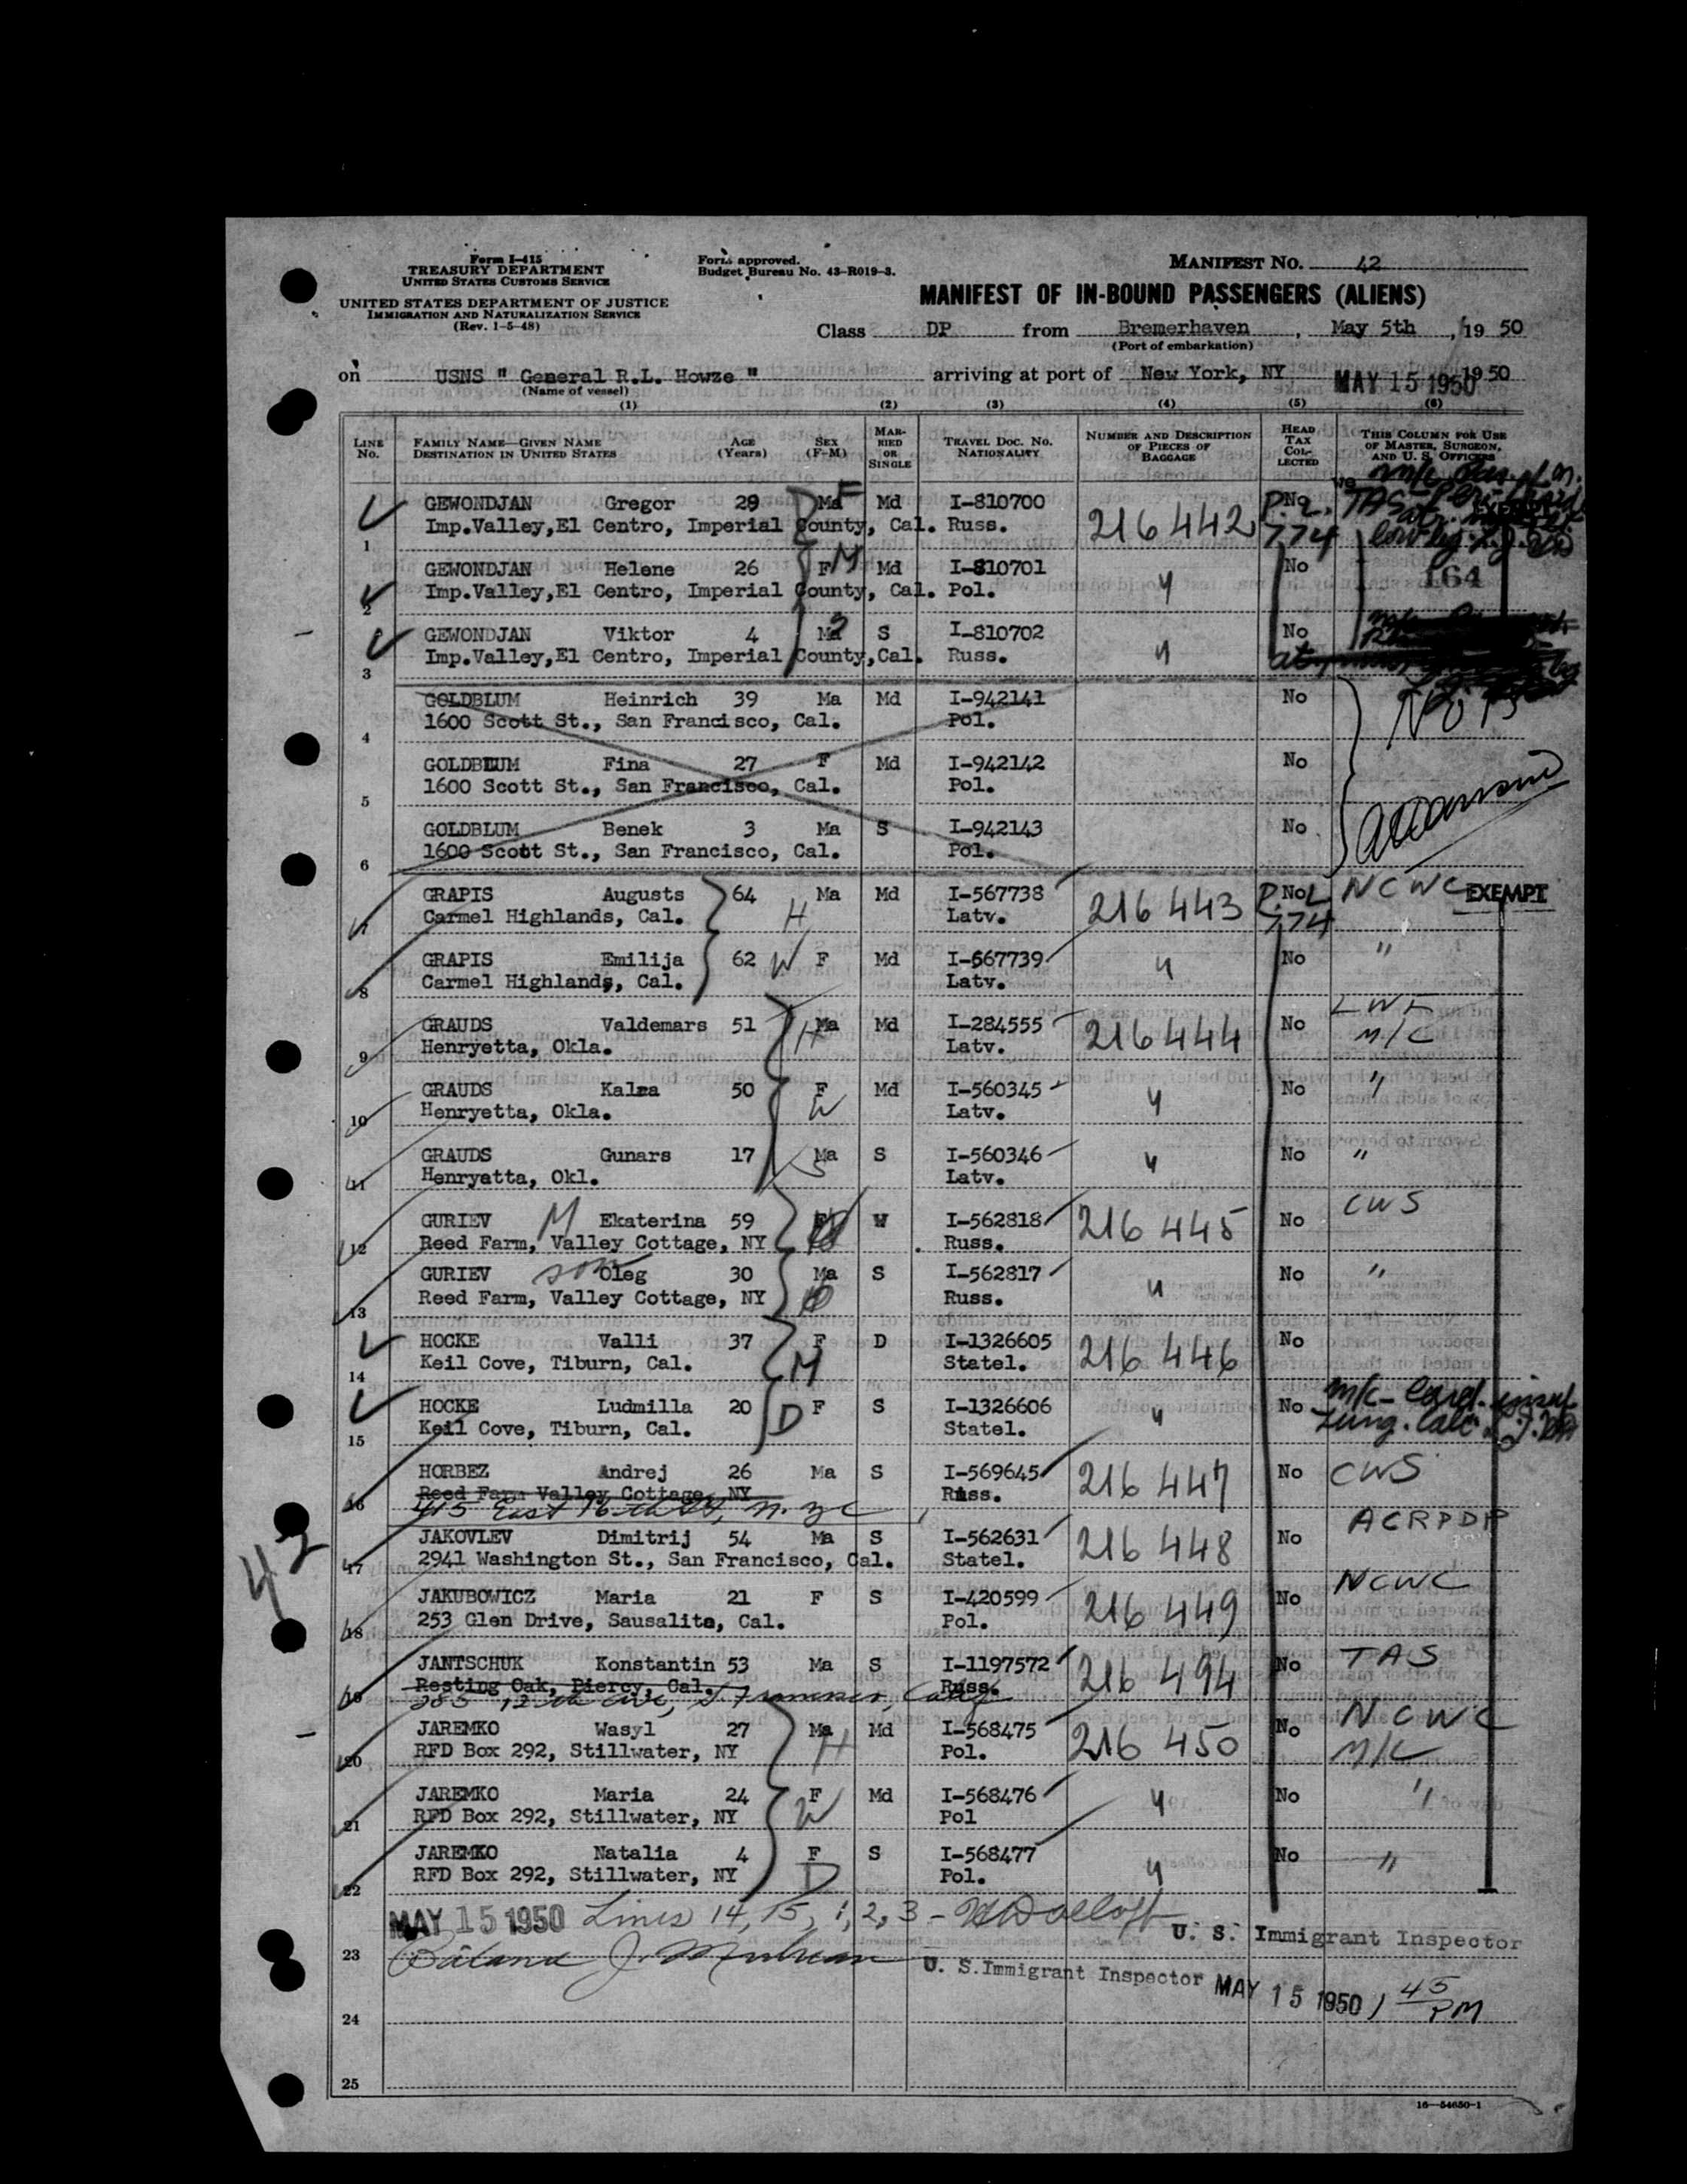 Form I-415
TREASURY DEPARTMENT
UNITED STATES CUSTOMS SERVICE
UNITED STATES DEPARTMENT OF JUSTICE
IMMIGRATION AND NATURALIZATION SERVICE
(Rev. 1-5-48)
Form approved.
Budget Bureau No. 43-R019-3.
MANIFEST NO. 42
MANIFEST OF IN-BOUND PASSENGERS (ALIENS)
Class DP from Bremerhaven, May 5th, 19 50
(Port of embarkation)
on USNS " General R.L. Howze " arriving at port of New York, NY MAY 15 1950 19 50
(Name of vessel)
(1) (2) (3) (4) (5) (6)
LINE NO. FAMILY NAME—GIVEN NAME DESTINATION IN UNITED STATES AGE (Years) SEX (F-M) MARRIED OR SINGLE TRAVEL DOC. NO. NATIONALITY NUMBER AND DESCRIPTION OF PIECES OF BAGGAGE HEAD TAX COLLECTED THIS COLUMN FOR USE OF MASTER, SURGEON, AND U. S. OFFICERS
GEWONDJAN Gregor 29 Ma F Md I-810700 216442 No P.L. 774 TAS
1 Imp.Valley,El Centro, Imperial County, Cal. Russ.
GEWONDJAN Helene 26 F M Md I-810701 " No 164
2 Imp.Valley,El Centro, Imperial County, Cal. Pol.
GEWONDJAN Viktor 4 Ma S S I-810702 " No
3 Imp.Valley,El Centro, Imperial County,Cal. Russ.
GOLDBLUM Heinrich 39 Ma Md I-942141 No
4 1600 Scott St., San Francisco, Cal. Pol.
GOLDBLUM Fina 27 F Md I-942142 No
5 1600 Scott St., San Francisco, Cal. Pol.
GOLDBLUM Benek 3 Ma S I-942143 No
6 1600 Scott St., San Francisco, Cal. Pol.
GRAPIS Augusts 64 H Ma Md I-567738 216 443 No P.L. 774 NCWC EXEMPT
7 Carmel Highlands, Cal. Latv.
GRAPIS Emilija 62 W F Md I-567739 " No "
8 Carmel Highlands, Cal. Latv.
GRAUDS Valdemars 51 H Ma Md I-284555 216444 No LWF M/C
9 Henryetta, Okla. Latv.
GRAUDS Kalza 50 F W Md I-560345 " No "
10 Henryetta, Okla. Latv.
GRAUDS Gunars 17 Ma S S I-560346 " No "
11 Henryatta, Okl. Latv.
GURIEV M Ekaterina 59 F W I-562818 216 445 No CWS
12 Reed Farm, Valley Cottage, NY Russ.
GURIEV son Oleg 30 Ma S I-562817 " No "
13 Reed Farm, Valley Cottage, NY Russ.
HOCKE Valli 37 F M D I-1326605 216 446 No
14 Keil Cove, Tiburn, Cal. Statel.
HOCKE Ludmilla 20 D F S I-1326606 " No M/C
15 Keil Cove, Tiburn, Cal. Statel.
HORBEZ Andrej 26 Ma S I-569645 216 447 No CWS
16 Reed Farm Valley Cottage, NY Russ.
415 East 16th St, N.Y.C
JAKOVLEV Dimitrij 54 Ma S I-562631 216 448 No ACRPDP
17 2941 Washington St., San Francisco, Cal. Statel.
JAKUBOWICZ Maria 21 F S I-420599 216 449 No NCWC
18 253 Glen Drive, Sausalito, Cal. Pol.
JANTSCHUK Konstantin 53 Ma S I-1197572 216 494 No TAS
19 Resting Oak, Piercy, Cal. Russ.
285 12th Ave, S. Francisco, Calif
JAREMKO Wasyl 27 Ma H Md I-568475 216 450 No NCWC M/C
20 RFD Box 292, Stillwater, NY Pol.
JAREMKO Maria 24 F W Md I-568476 " No "
21 RFD Box 292, Stillwater, NY Pol
JAREMKO Natalia 4 F D S I-568477 " No "
22 RFD Box 292, Stillwater, NY Pol.
42
MAY 15 1950 Lines 14, 15, 1, 2, 3 -
U. S. Immigrant Inspector
23 U. S. Immigrant Inspector MAY 15 1950 1 45 PM
24
25
16—54650-1